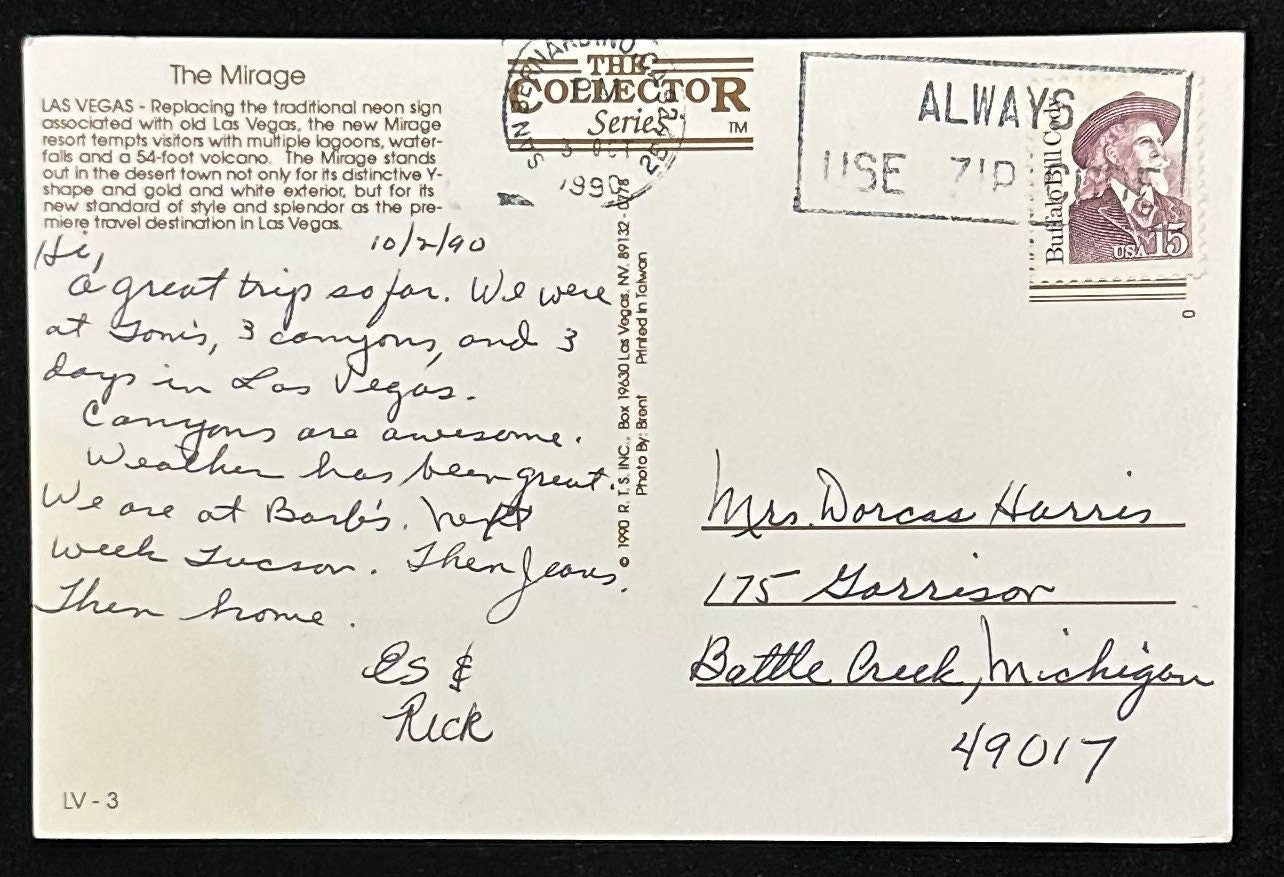 The Mirage
LAS VEGAS - Replacing the traditional neon sign
associated with old Las Vegas, the new Mirage
resort tempts visitors with multiple lagoons, water-
falls and a 54-foot volcano. The Mirage stands
out in the desert town not only for its distinctive Y-
shape and gold and white exterior, but for its
new standard of style and splendor as the pre-
miere travel destination in Las Vegas.
Hi, 10/2/90
A great trip so far. We were
at Toni's, 3 canyons, and 3
days in Las Vegas.
Canyons are awesome.
Weather has been great.
We are at Barb's. Next
week Tucson. Then Jeans.
Then home.
Es &
Rick
LV - 3
THE
COLLECTOR
Series TM
SAN BERNARDINO CA
PM
3 OCT
1990
© 1990 R. T. S. INC., Box 19630 Las Vegas, NV. 89132 - 0778
Photo By: Brent Printed in Taiwan
ALWAYS
USE ZIP CODE
Buffalo Bill Cody
USA 15
0
Mrs. Dorcas Harris
175 Garrison
Battle Creek, Michigan
49017